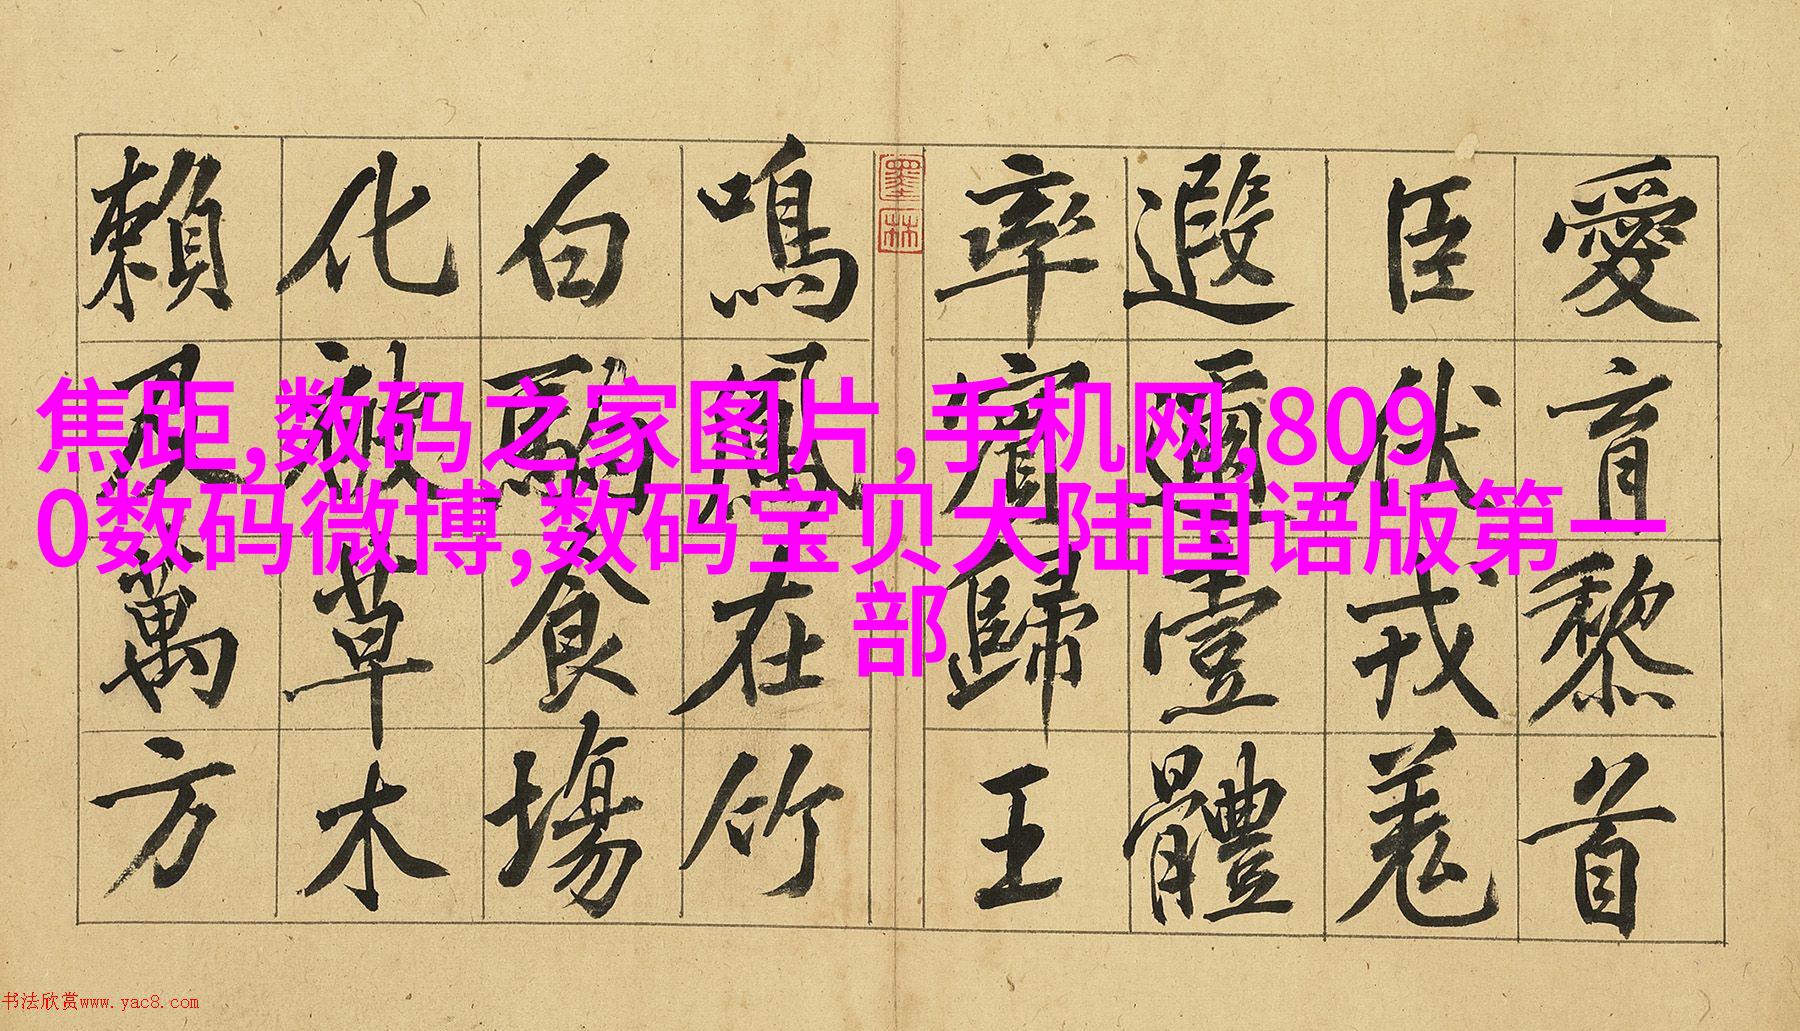 愛育黎首
臣伏戎羌
遐邇壹體
率賓歸王
墨林
鳴鳳在竹
白駒食場
化被草木
賴及萬方
焦距,数码之家图片,手机网,809
0数码微博,数码宝贝大陆国语版第一
部
书法欣赏www.yac8.com